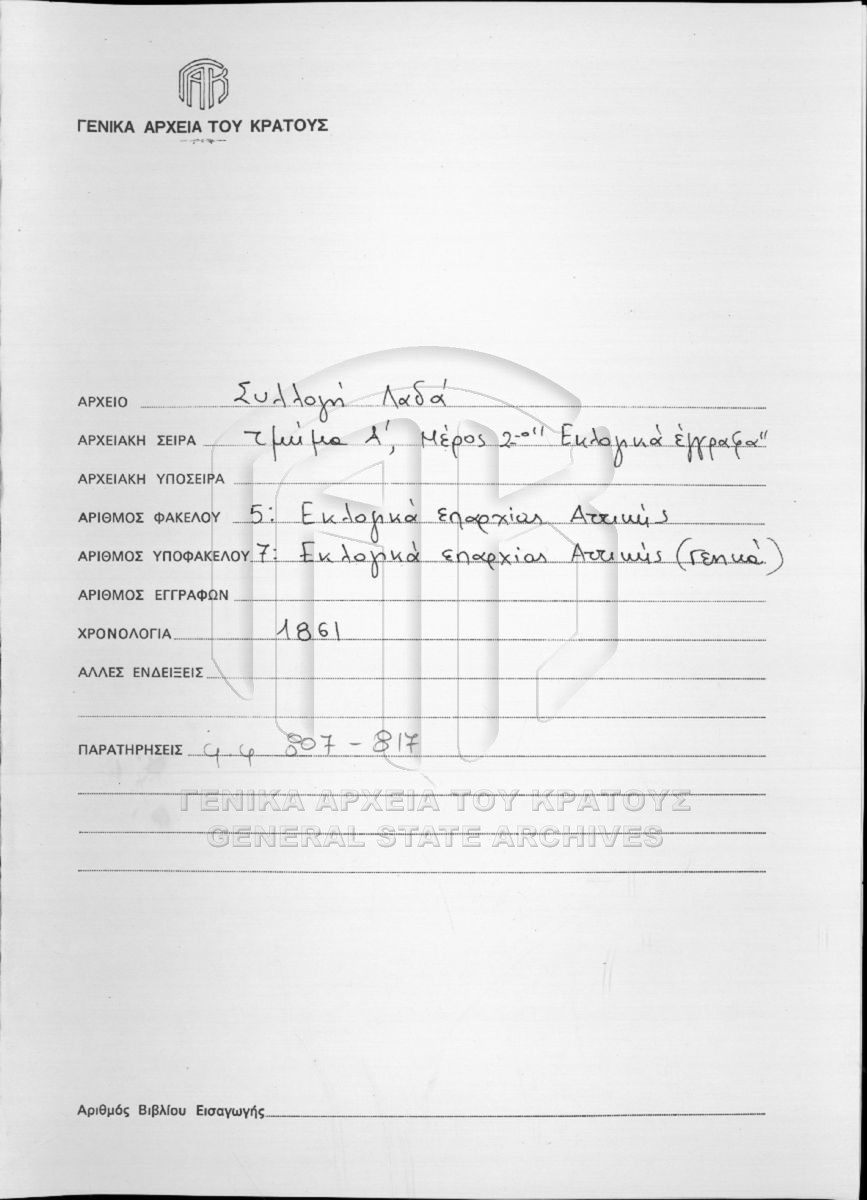 ΓΑΚ
ΓΕΝΙΚΑ ΑΡΧΕΙΑ ΤΟΥ ΚΡΑΤΟΥΣ
ΑΡΧΕΙΟ Συλλογή Λαδά
ΑΡΧΕΙΑΚΗ ΣΕΙΡΑ Τμήμα Α', Μέρος 2ο "Εκλογικά έγγραφα"
ΑΡΧΕΙΑΚΗ ΥΠΟΣΕΙΡΑ
ΑΡΙΘΜΟΣ ΦΑΚΕΛΟΥ 5: Εκλογικά επαρχίας Αττικής
ΑΡΙΘΜΟΣ ΥΠΟΦΑΚΕΛΟΥ 7: Εκλογικά επαρχίας Αττικής (Γενικά)
ΑΡΙΘΜΟΣ ΕΓΓΡΑΦΩΝ
ΧΡΟΝΟΛΟΓΙΑ 1861
ΑΛΛΕΣ ΕΝΔΕΙΞΕΙΣ
ΠΑΡΑΤΗΡΗΣΕΙΣ φφ 807 - 817
ΓΕΝΙΚΑ ΑΡΧΕΙΑ ΤΟΥ ΚΡΑΤΟΥΣ
GENERAL STATE ARCHIVES
Αριθμός Βιβλίου Εισαγωγής